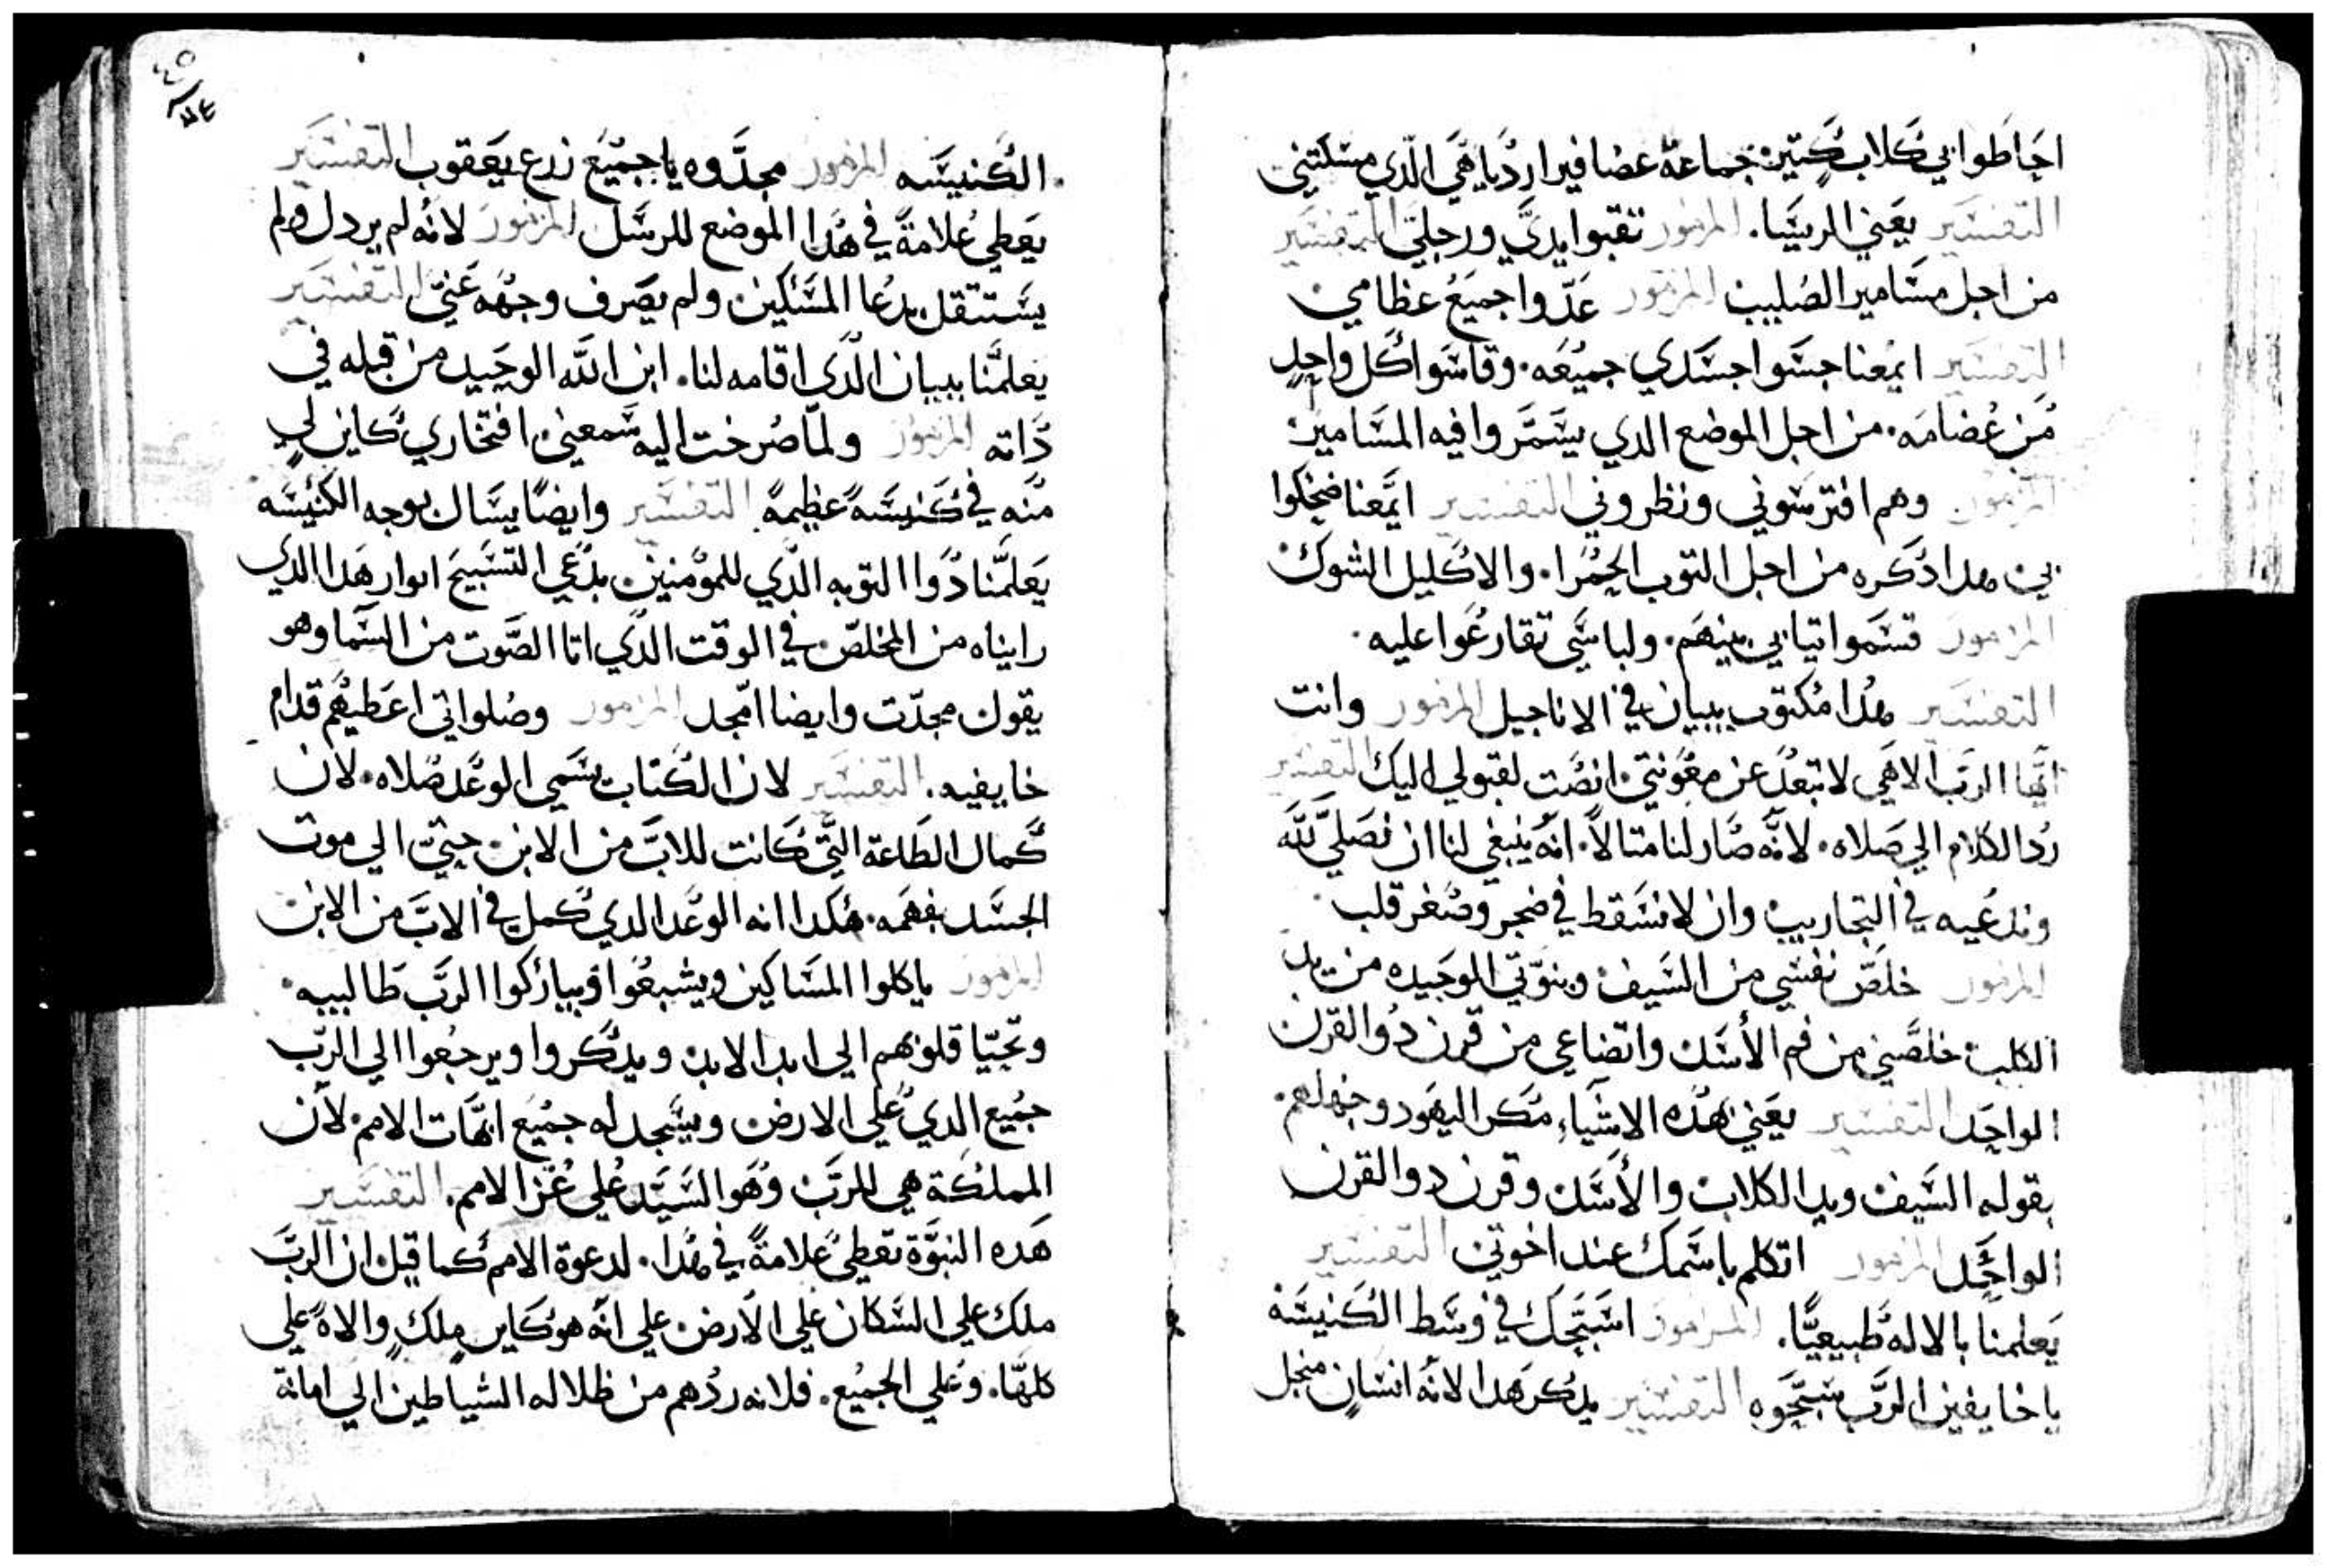 احاطوا بي كلاب كتير جماعة عضافير ارديا هي الدي مسكتني
التفسير يعني الريسا. المزمور تقبوا يدي ورجلي التفسير
من اجل مسامير الصليب المزمور عدوا جميع عظامي
التفسير ايمعنا جسوا جسدي جميعه. وقاسوا كل واحد
من عضامه. من اجل الموضع الدي يسمروا فيه المسامير
المزمور. وهم افترسوني ونظروني التفسير ايمعنا ضحكوا
بي هدا دكره من اجل التوب الحمرا. والاكليل الشوك
المزمور قسموا تيابي بينهم. ولباسي تقارعوا عليه
التفسير هدا مكتوب ببيان في الاناجيل المزمور وانت
ايها الرب الاهي لا تبعد عن معونتي. انصت لقبولي اليك التفسير
رد الكلام الي صلاه. لانه صار لنا متالا. انه ينبغي لنا ان نصلي لله
وندعيه في التجاريب وان لا نسقط في ضجر وصغر قلب
المزمور خلص نفسي من السيف وبنوتي الوحيده من يد
الكلب خلصني من فم الأسد واتضاعي من قرن دوا القرن
الواحد التفسير يعني هده الاشياء مكر اليهود وجهلهم
بقوله السيف ويد الكلاب والأسد وقرن دوا القرن
الواحد المزمور اتكلم باسمك عند اخوتي التفسير
يعلمنا بالاله طبيعيا. المزمور اسبحك في وسط الكنيسه
يا خايفين الرب سبحوه التفسير يدكر هدا لانه انسان منجل
الكنيسه المزمور مجدوه يا جميع زرع يعقوب التفسير
يعطي علامة في هدا الموضع للرسل المزمور لانه لم يردل ولم
يستتقل بدعا المسكين ولم يصرف وجهه عني التفسير
يعلمنا ببيان الدي اقامه لنا. ابن الله الوحيد من قبله في
داته المزمور ولما صرخت اليه سمعني افتخاري كاين لي
منه في كنيسة عظيمة التفسير وايضا يسال بوجه الكنيسه
يعلمنا دوا التوبه الدي للمومنين بدعي التسبيح انوار هدا الدي
رايناه من المخلص في الوقت الدي اتا الصوت من السما وهو
يقول مجدت وايضا امجد المزمور وصلواتي اعطيهم قدام
خايفيه. التفسير لان الكتاب يسمي الوعد صلاه. لان
كمال الطاعة التي كانت للاب من الابن حتي الي موت
الجسد بفهمه. هكدا انه الوعد الدي كمل في الاب من الابن
المزمور ياكلوا المساكين ويشبعوا ويباركوا الرب طالبيه
وتحيا قلوبهم الي ابد الابد ويدكروا ويرجعوا الي الرب
جميع الدي علي الارض ويسجد له جميع ابهات الامم لان
المملكة هي للرب وهو السيد علي عز الامم. التفسير
هده النبوة تعطي علامة في هدا. لدعوة الامم كما قيل ان الرب
ملك علي السكان علي الارض علي انه هو كاين ملك والاه علي
كلها. وعلي الجميع. فلانه ردهم من ظلاله الشياطين الي امانة